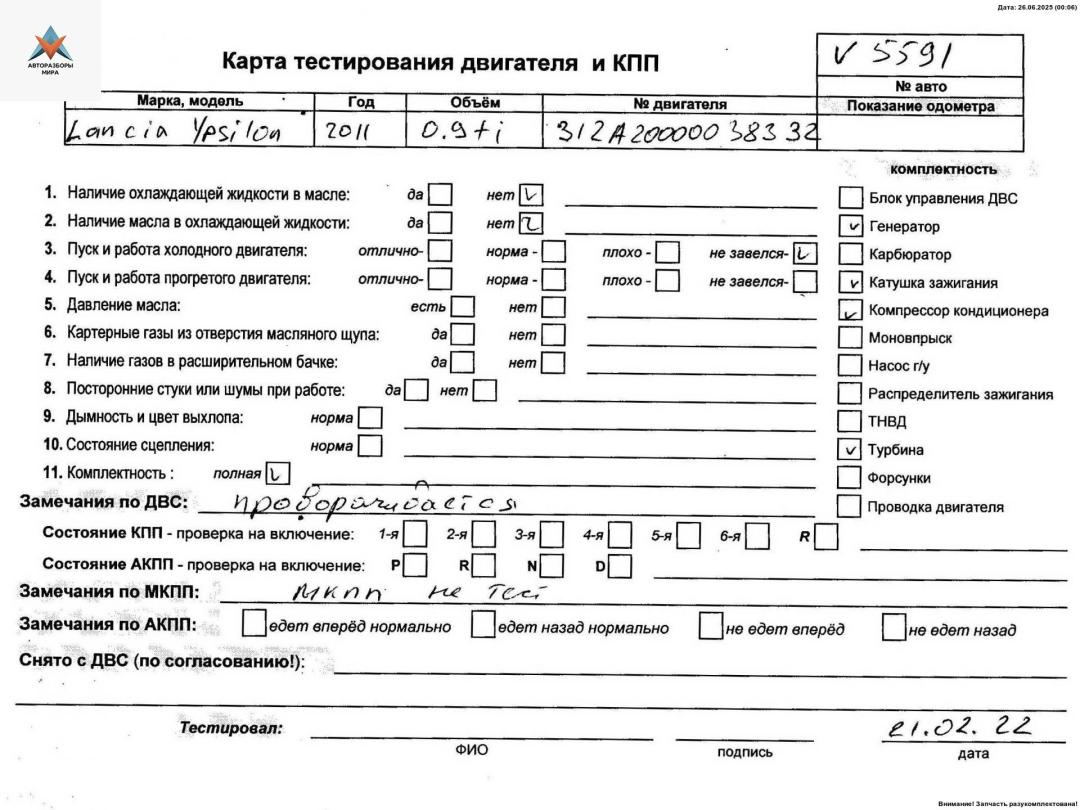 Дата: 26.06.2025 (00:06)
АВТОРАЗБОРЫ
МИРА
Карта тестирования двигателя и КПП
V 5591
№ авто
Марка, модель Год Объём № двигателя Показание одометра
Lancia Ypsilon 2011 0.9ti 312A200000038332
комплектность
1. Наличие охлаждающей жидкости в масле: да нет
Блок управления ДВС
2. Наличие масла в охлаждающей жидкости: да нет
Генератор
3. Пуск и работа холодного двигателя: отлично- норма - плохо - не завелся-
Карбюратор
4. Пуск и работа прогретого двигателя: отлично- норма - плохо - не завелся-
Катушка зажигания
5. Давление масла: есть нет
Компрессор кондиционера
6. Картерные газы из отверстия масляного щупа: да нет
Моновпрыск
7. Наличие газов в расширительном бачке: да нет
Насос г/у
8. Посторонние стуки или шумы при работе: да нет
Распределитель зажигания
9. Дымность и цвет выхлопа: норма
ТНВД
10. Состояние сцепления: норма
Турбина
11. Комплектность : полная
Форсунки
Замечания по ДВС: проворачивается
Проводка двигателя
Состояние КПП - проверка на включение: 1-я 2-я 3-я 4-я 5-я 6-я R
Состояние АКПП - проверка на включение: P R N D
Замечания по МКПП: МКПП не тест
Замечания по АКПП: едет вперёд нормально едет назад нормально не едет вперёд не едет назад
Снято с ДВС (по согласованию!):
Тестировал: 21.02.22
ФИО подпись дата
Внимание! Запчасть разукомплектована!